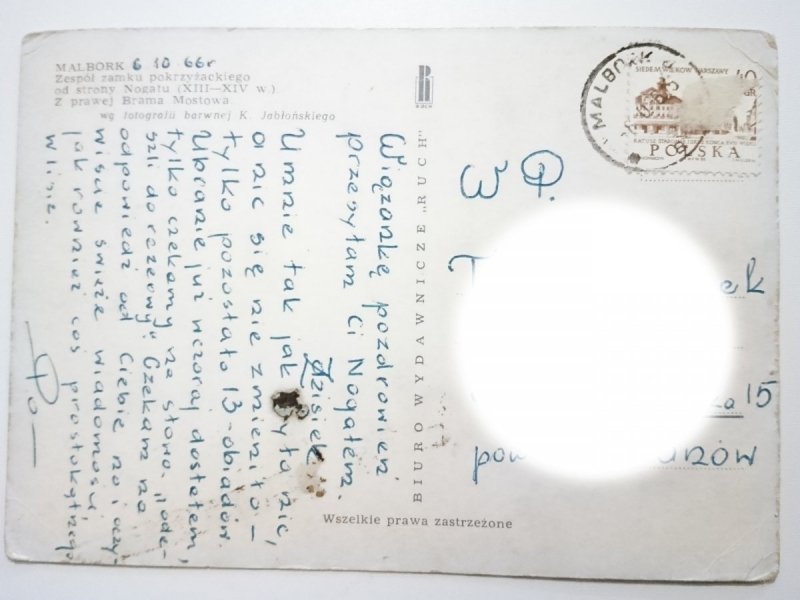 MALBORK 6 10 66r
Zespół zamku pokrzyżackiego
od strony Nogatu (XIII—XIV w.)
Z prawej Brama Mostowa.
wg fotografii barwnej K. Jabłońskiego
Wiązankę pozdrowień
przesyłam Ci Nogatem.
Dzisiek
U mnie tak jak była nic,
a nic się nie zmieniło —
tylko pozostało 13-obiadów.
Ubranie już wczoraj dostałem,
tylko czekamy na słowa "ode-
szli do rezerwy". Czekam na
odpowiedź od Ciebie no i oczy-
wiście świeże wiadomości,
jak również coś prostokątnego
w liście.
Po —
BIURO WYDAWNICZE „RUCH"
RUCH
MALBORK
SIEDEM WIEKÓW WARSZAWY
40
GR
POLSKA
W P.
T ek
15
pow
Wszelkie prawa zastrzeżone